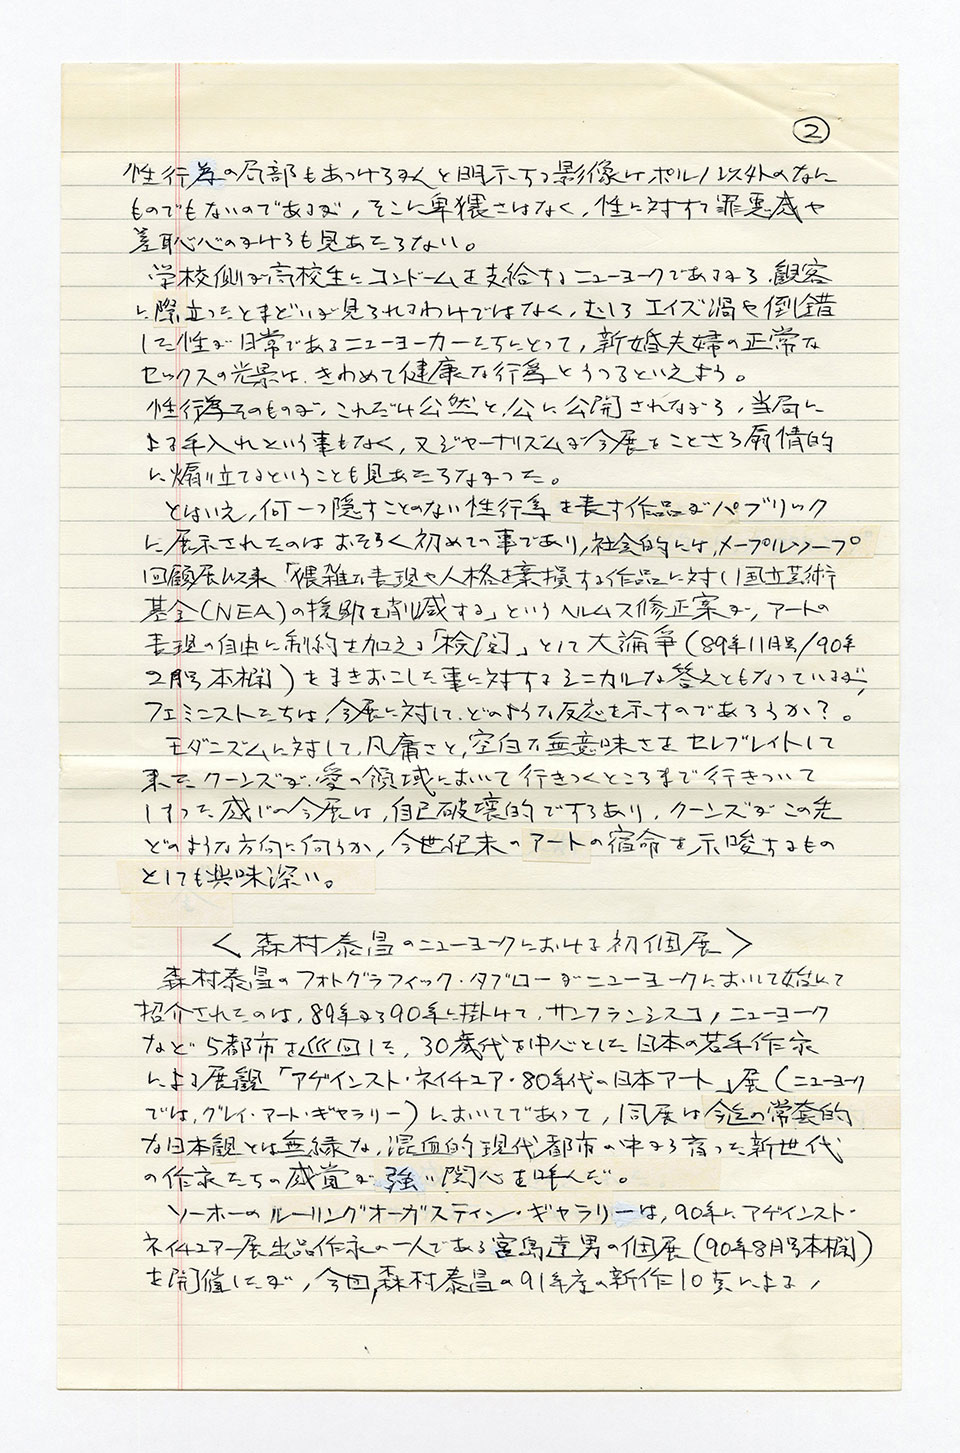 ②
性行為の局部もあっけらかんと明示する影像は、ポルノ以外のなに
ものでもないのであるが、そこに卑猥さはなく、性に対する罪悪感や
羞恥心のかけらも見あたらない。
学校側が高校生にコンドームを支給するニューヨークであるから、観客
に際立ったとまどいが見られるわけではなく、むしろ エイズ渦や倒錯
した性が日常であるニューヨーカーたちにとって、新婚夫婦の正常な
セックスの光景は、きわめて健康な行為とうつるといえよう。
性行為そのものが、これだけ公然と、公に公開されながら、当局に
よる手入れという事もなく、又ジャーナリズムが今展をことさら扇情的
に煽り立てるということも見あたらなかった。
とはいえ、何一つ隠すことのない性行為を表す作品がパブリック
に展示されたのはおそらく初めての事であり、社会的には、メープルソープ
回顧展以来「猥雑な表現や人格を棄損する作品に対し国立芸術
基金(NEA)の援助を削減する」というヘルムズ修正案が、アートの
表現の自由に制約を加える「検閲」として大論争(89年11月号/90年
2月号本欄)をまきおこした事に対するシニカルな答えともなっているが、
フェミニストたちは、今展に対して、どのような反応を示すのであろうか?。
モダニズムに対して、凡庸さと、空白な無意味さをセレブレイトして
来たクーンズが、愛の領域において行きつくところまで行きついて
しまった感じの今展は、自己破壊的でするあり、クーンズがこの先
どのような方向に向うか、今世紀末のアートの宿命を示唆するもの
としても興味深い。
<森村泰昌のニューヨークにおける初個展>
森村泰昌のフォトグラフィック・タブローがニューヨークにおいて始めて
紹介されたのは、89年から90年に掛けて、サンフランシスコ、ニューヨーク
など5都市を巡回した、30歳代を中心とした日本の若手作家
による展観「アゲインスト・ネイチュア・80年代の日本アート」展(ニューヨーク
では、グレイ・アート・ギャラリー)においてであって、同展は今迄の常套的
な日本観とは無縁な、混血的現代都市の中から育った新世代
の作家たちの感覚が強い関心を呼んだ。
ソーホーのルーリングオーガスティン・ギャラリーは、90年にアゲインスト・
ネイチュアー展出品作家の一人である宮島達男の個展(90年8月号本欄)
を開催したが、今回、森村泰昌の91年度の新作10点による、